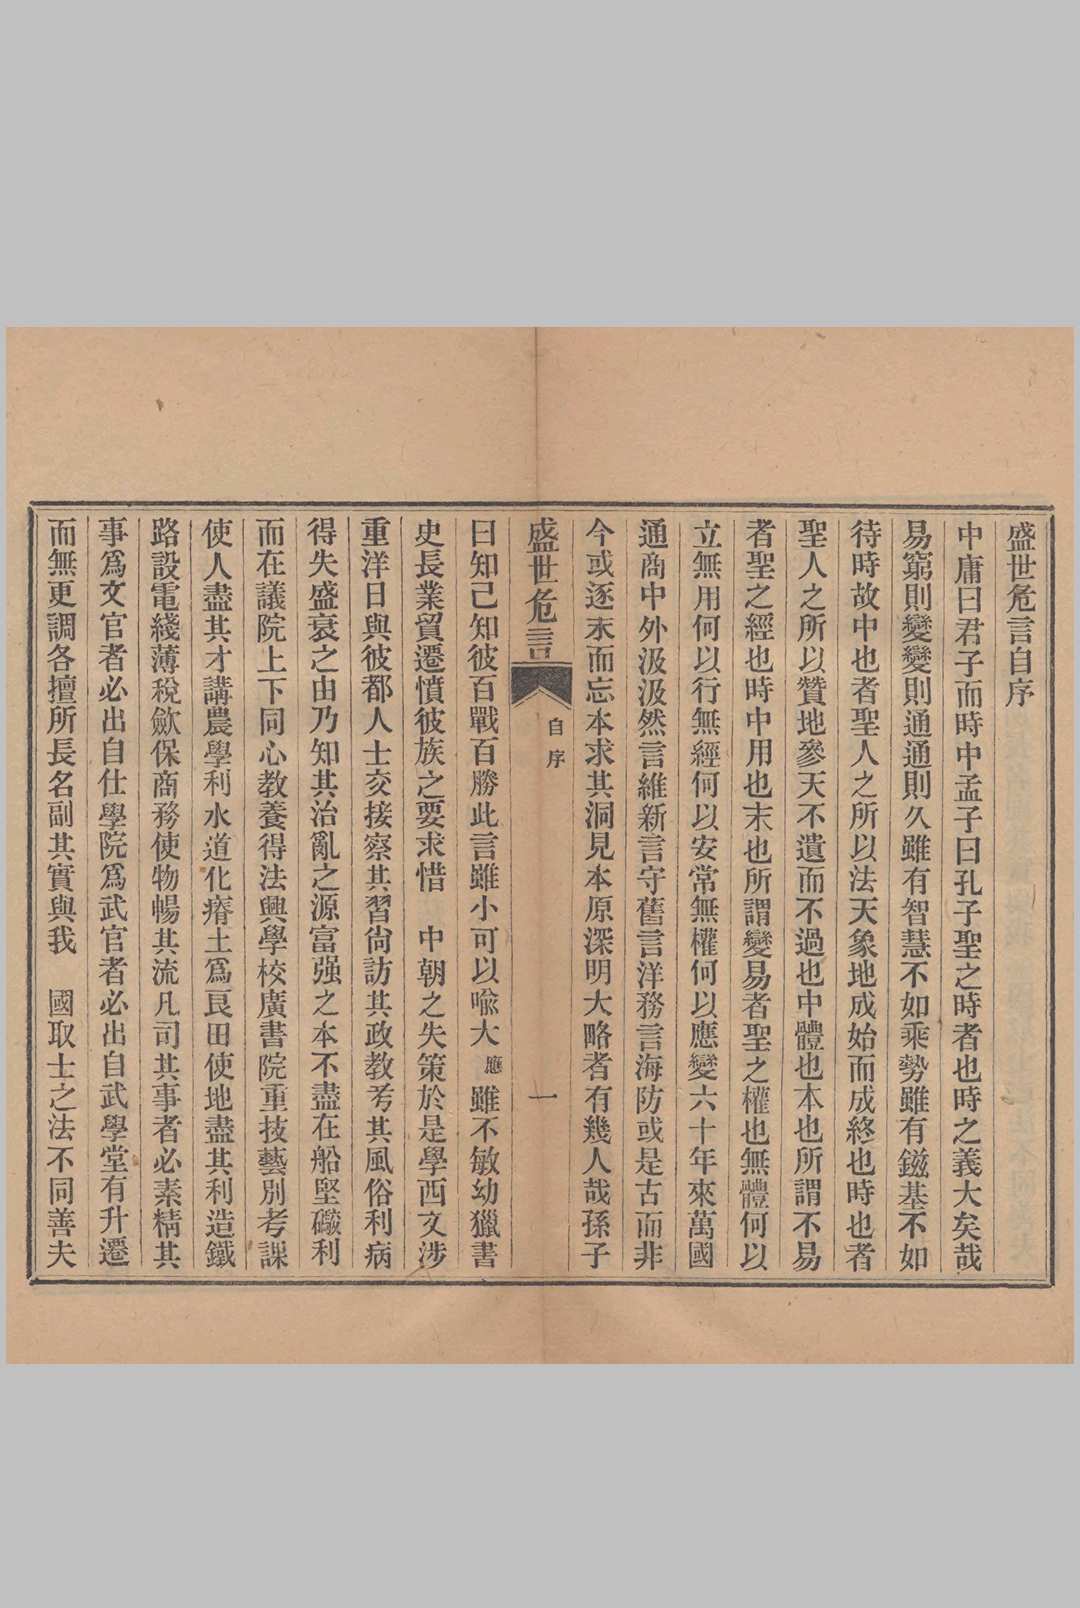 盛世危言自序
中庸曰君子而時中孟子曰孔子聖之時者也時之義大矣哉
易窮則變變則通通則久雖有智慧不如乘勢雖有鎡基不如
待時故中也者聖人之所以法天象地成始而成終也時也者
聖人之所以贊地參天不遺而不過也中體也本也所謂不易
者聖之經也時中用也末也所謂變易者聖之權也無體何以
立無用何以行無經何以安常無權何以應變六十年來萬國
通商中外汲汲然言維新言守舊言洋務言海防或是古而非
今或逐末而忘本求其洞見本原深明大略者有幾人哉孫子
盛世危言 自序 一
曰知己知彼百戰百勝此言雖小可以喻大應雖不敏幼獵書
史長業貿遷憤彼族之要求惜 中朝之失策於是學西文涉
重洋日與彼都人士交接察其習尙訪其政教考其風俗利病
得失盛衰之由乃知其治亂之源富强之本不盡在船堅礮利
而在議院上下同心教養得法興學校廣書院重技藝別考課
使人盡其才講農學利水道化瘠土爲良田使地盡其利造鐵
路設電綫薄稅斂保商務使物暢其流凡司其事者必素精其
事爲文官者必出自仕學院爲武官者必出自武學堂有升遷
而無更調各擅所長名副其實與我 國取士之法不同善夫